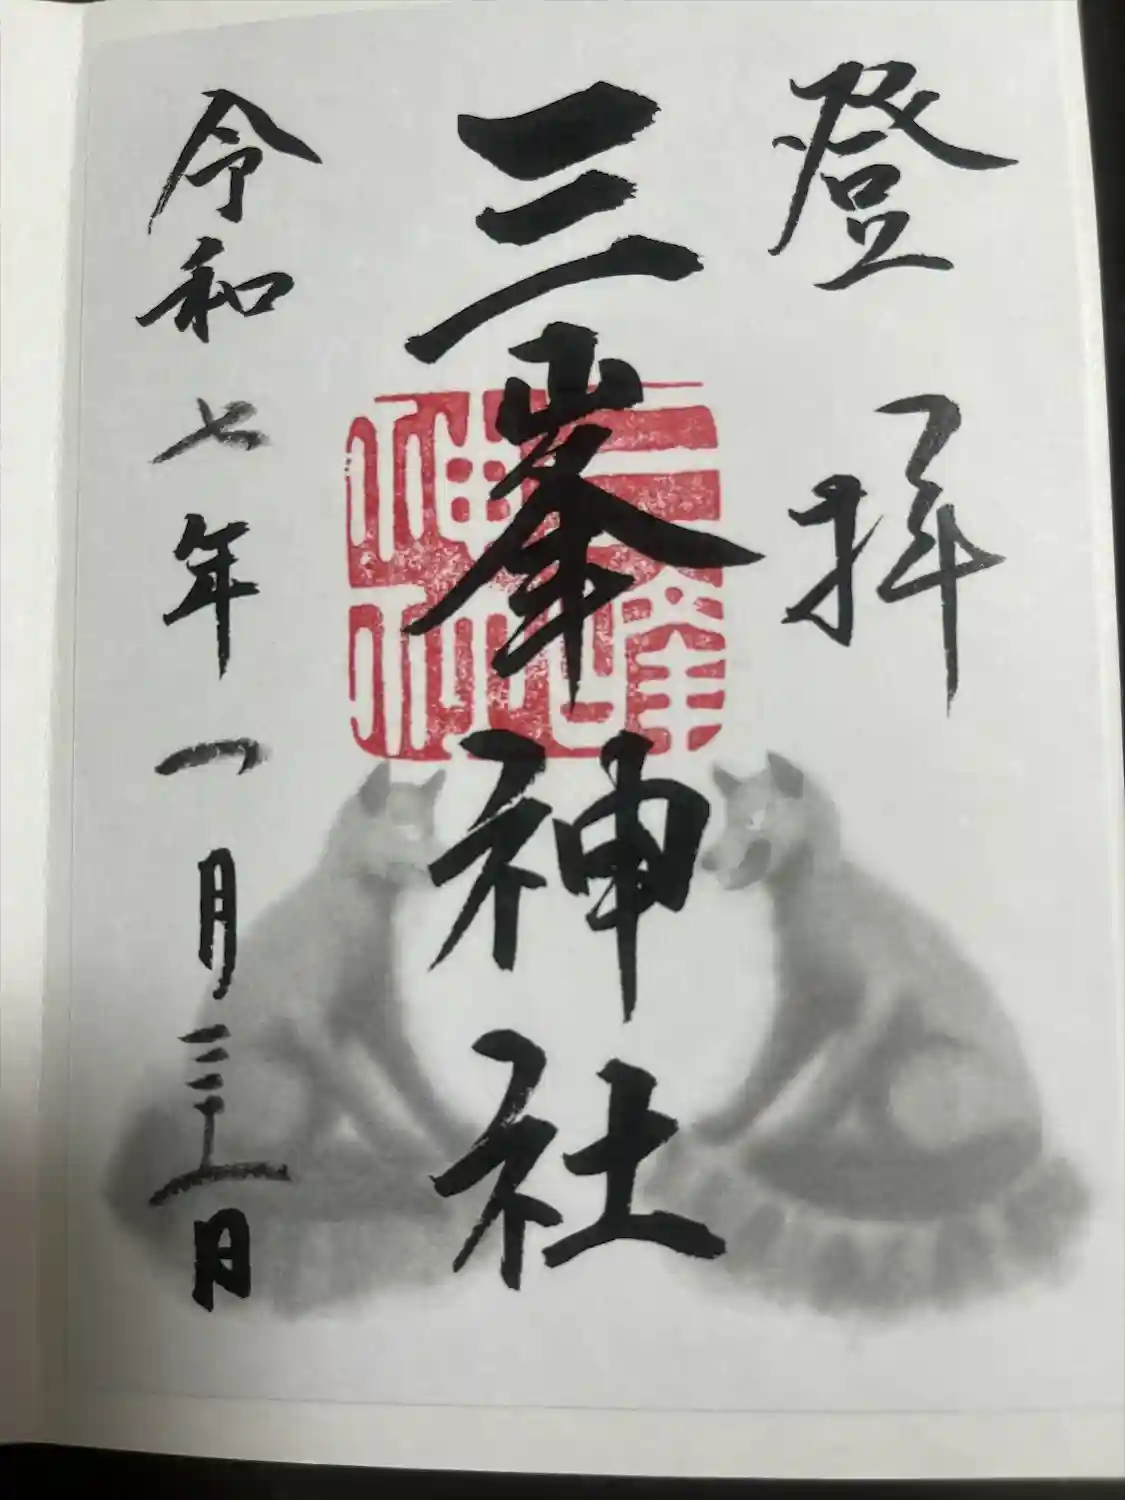 登拝
三峯神社
令和七年一月三十一日
三峰
神社